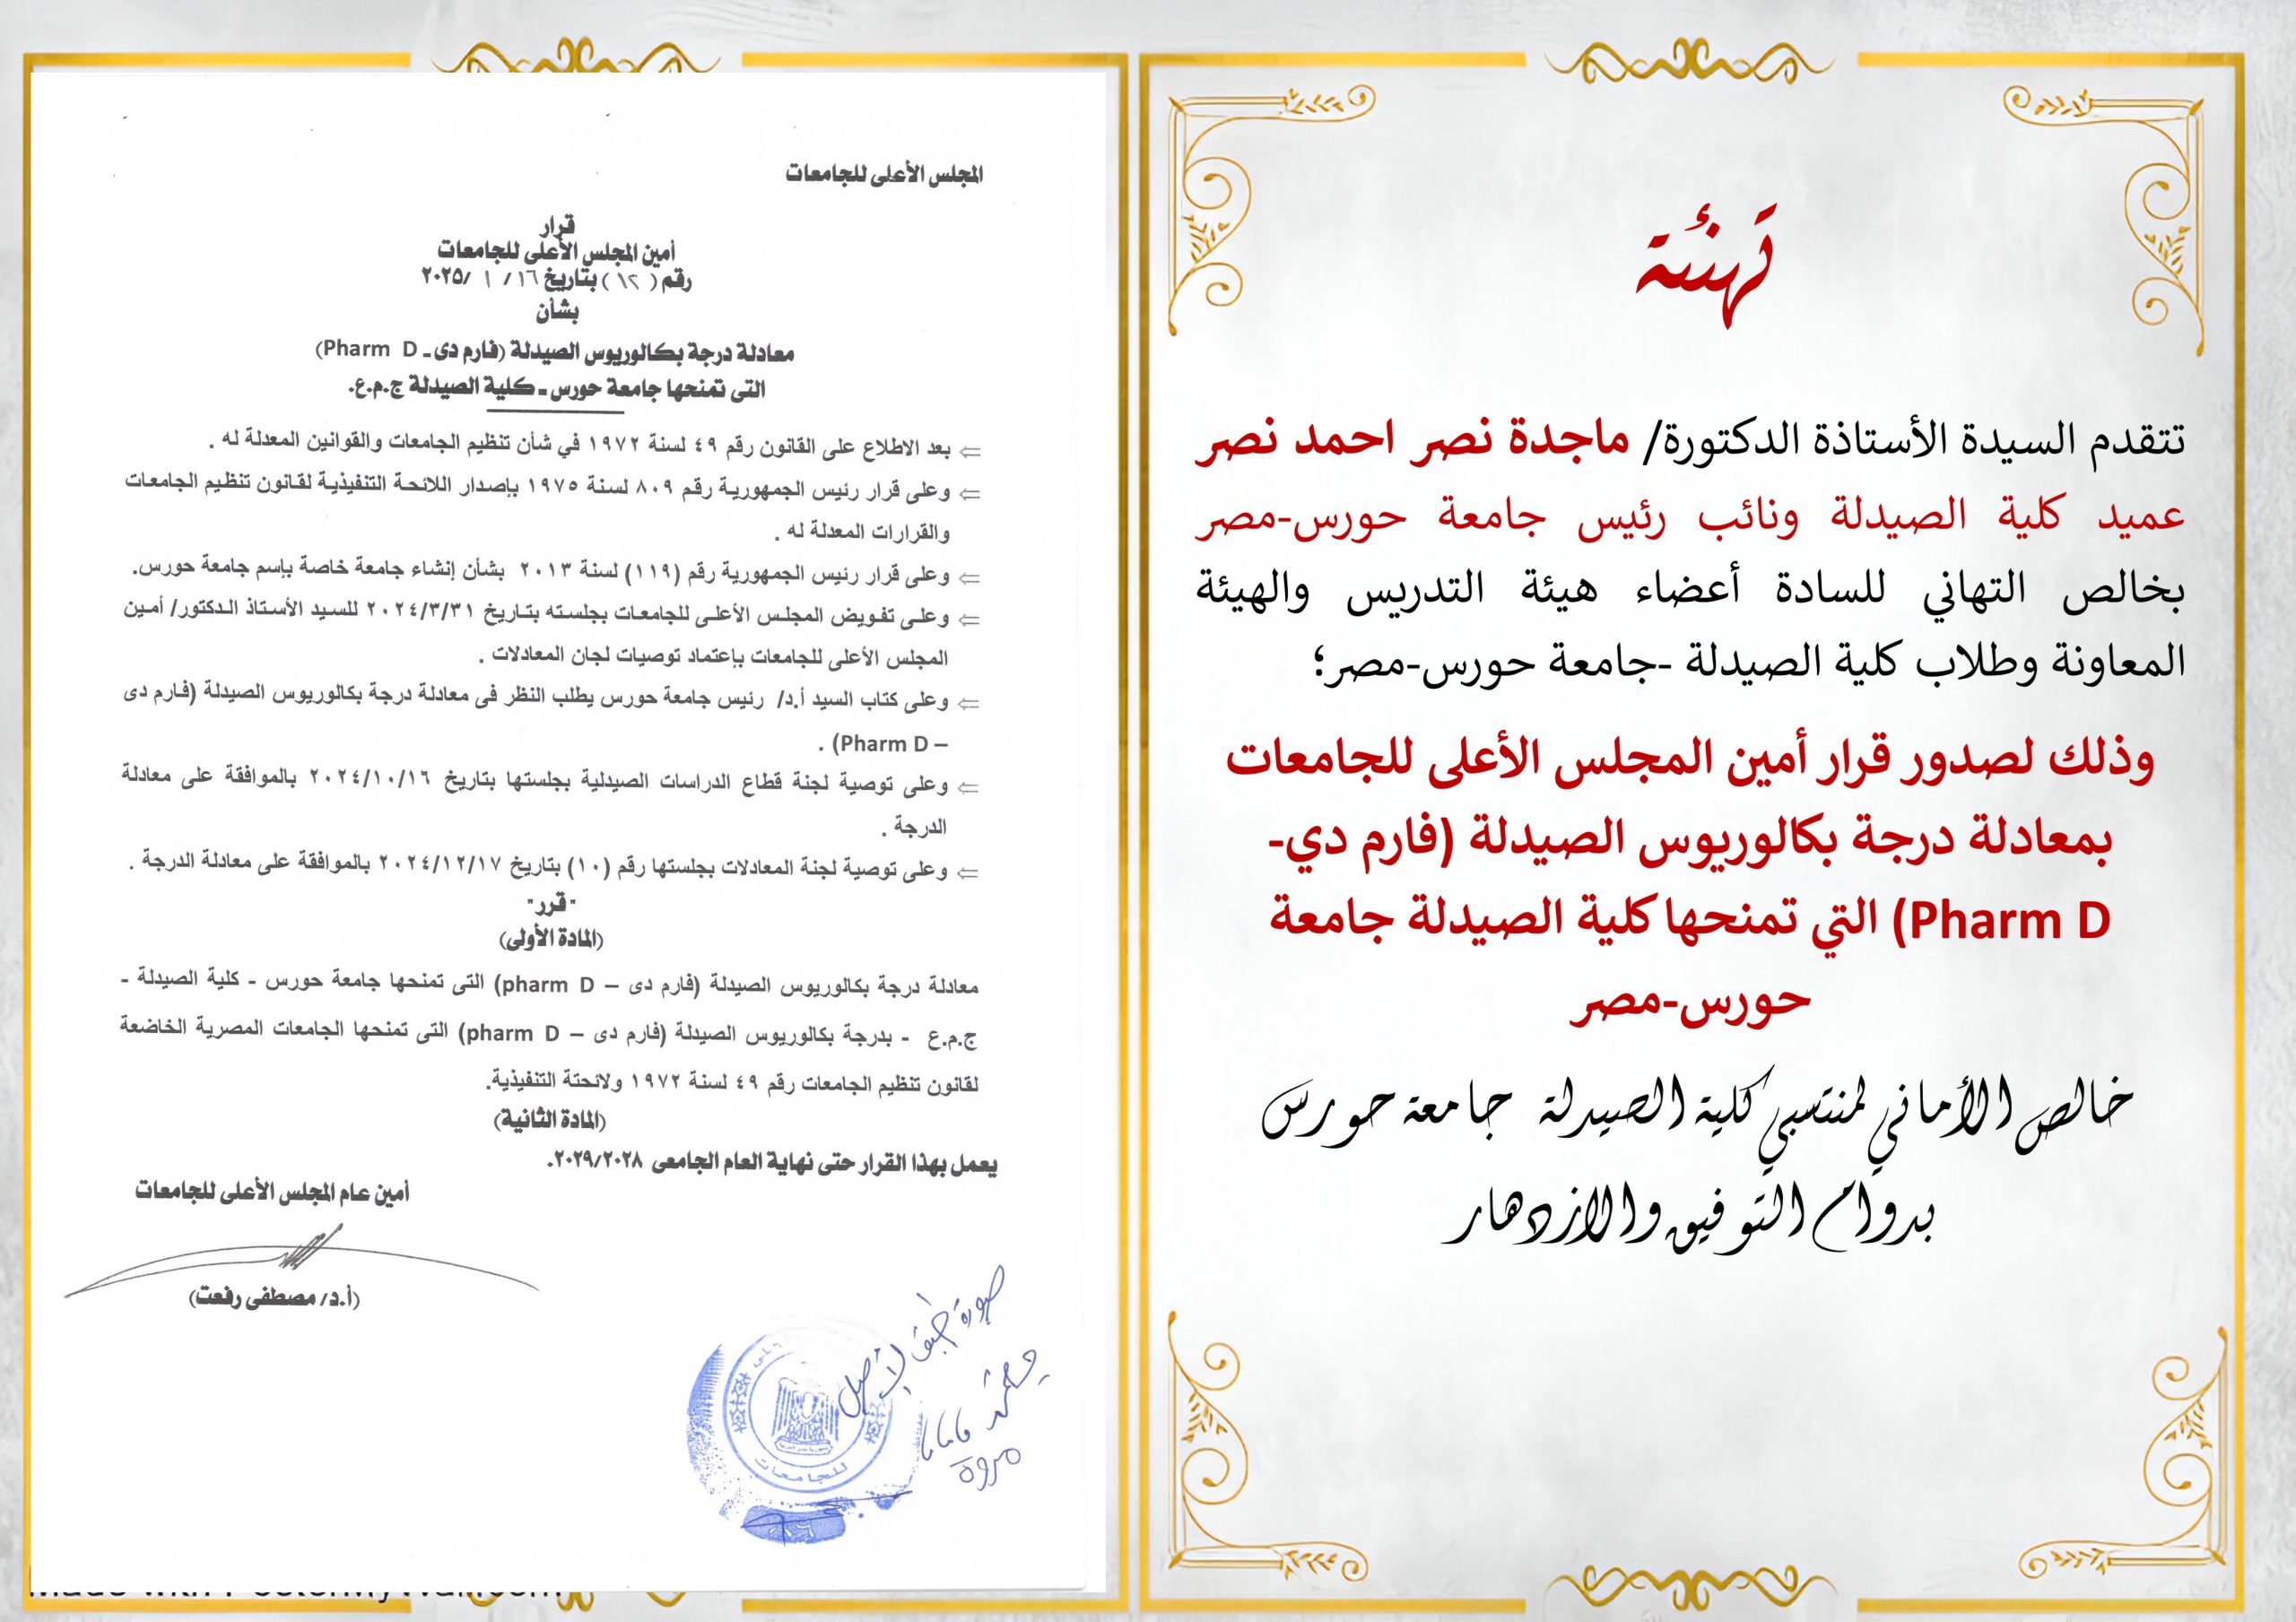 تهنئة
تتقدم السيدة الأستاذة الدكتورة/ ماجدة نصر احمد نصر
عميد كلية الصيدلة ونائب رئيس جامعة حورس-مصر
بخالص التهاني للسادة أعضاء هيئة التدريس والهيئة
المعاونة وطلاب كلية الصيدلة -جامعة حورس-مصر؛
وذلك لصدور قرار أمين المجلس الأعلى للجامعات
بمعادلة درجة بكالوريوس الصيدلة (فارم دي-
Pharm D) التي تمنحها كلية الصيدلة جامعة
حورس-مصر
خالص الأماني لمنتسبي كلية الصيدلة جامعة حورس
بدوام التوفيق والازدهار
المجلس الأعلى للجامعات
قرار
أمين المجلس الأعلى للجامعات
رقم (١٢) بتاريخ ١٦/ ١ /٢٠٢٥
بشأن
معادلة درجة بكالوريوس الصيدلة (فارم دى - Pharm D)
التى تمنحها جامعة حورس - كلية الصيدلة ج.م.ع.
⇐ بعد الاطلاع على القانون رقم ٤٩ لسنة ١٩٧٢ في شأن تنظيم الجامعات والقوانين المعدلة له .
⇐ وعلى قرار رئيس الجمهورية رقم ٨٠٩ لسنة ١٩٧٥ بإصدار اللائحة التنفيذية لقانون تنظيم الجامعات
والقرارات المعدلة له .
⇐ وعلى قرار رئيس الجمهورية رقم (١١٩) لسنة ٢٠١٣ بشأن إنشاء جامعة خاصة بإسم جامعة حورس.
⇐ وعلى تفويض المجلس الأعلى للجامعات بجلسته بتاريخ ٢٠٢٤/٣/٣١ للسيد الأستاذ الدكتور/ أمين
المجلس الأعلى للجامعات بإعتماد توصيات لجان المعادلات .
⇐ وعلى كتاب السيد أ.د/ رئيس جامعة حورس يطلب النظر فى معادلة درجة بكالوريوس الصيدلة (فارم دى
– Pharm D) .
⇐ وعلى توصية لجنة قطاع الدراسات الصيدلية بجلستها بتاريخ ٢٠٢٤/١٠/١٦ بالموافقة على معادلة
الدرجة .
⇐ وعلى توصية لجنة المعادلات بجلستها رقم (١٠) بتاريخ ٢٠٢٤/١٢/١٧ بالموافقة على معادلة الدرجة .
"قرر"
(المادة الأولى)
معادلة درجة بكالوريوس الصيدلة (فارم دى – pharm D) التى تمنحها جامعة حورس - كلية الصيدلة -
ج.م.ع - بدرجة بكالوريوس الصيدلة (فارم دى – pharm D) التى تمنحها الجامعات المصرية الخاضعة
لقانون تنظيم الجامعات رقم ٤٩ لسنة ١٩٧٢ ولائحتة التنفيذية.
(المادة الثانية)
يعمل بهذا القرار حتى نهاية العام الجامعى ٢٠٢٩/٢٠٢٨.
أمين عام المجلس الأعلى للجامعات
(أ.د/ مصطفى رفعت)
صورة طبق الأصل
مروة
للجامعات